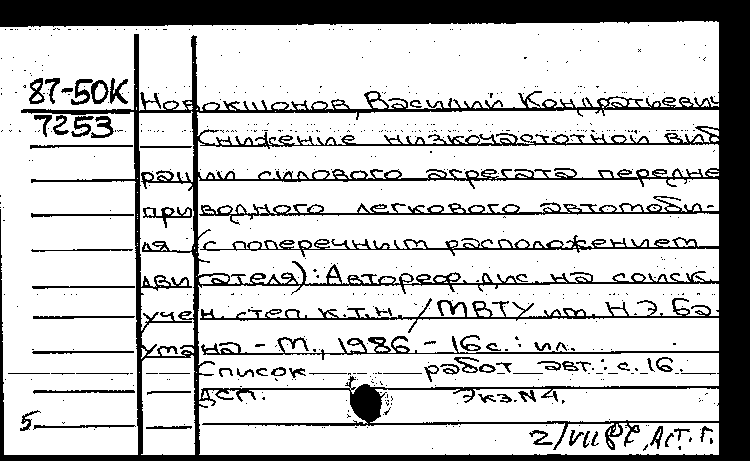 87-50К
7253
Новокшонов, Василий Кондратьевич
Снижение низкочастотной виб
рации силового агрегата передне
приводного легкового автомоби-
ля (с поперечным расположением
двигателя): Автореф. дис. на соиск.
учен. степ. к.т.н. / МВТУ им. Н.Э. Ба-
умана. - М., 1986. - 16с.: ил.
Список работ авт.: с. 16.
ДСП. Экз. N4.
5
2/VII 87, Аст. Г.